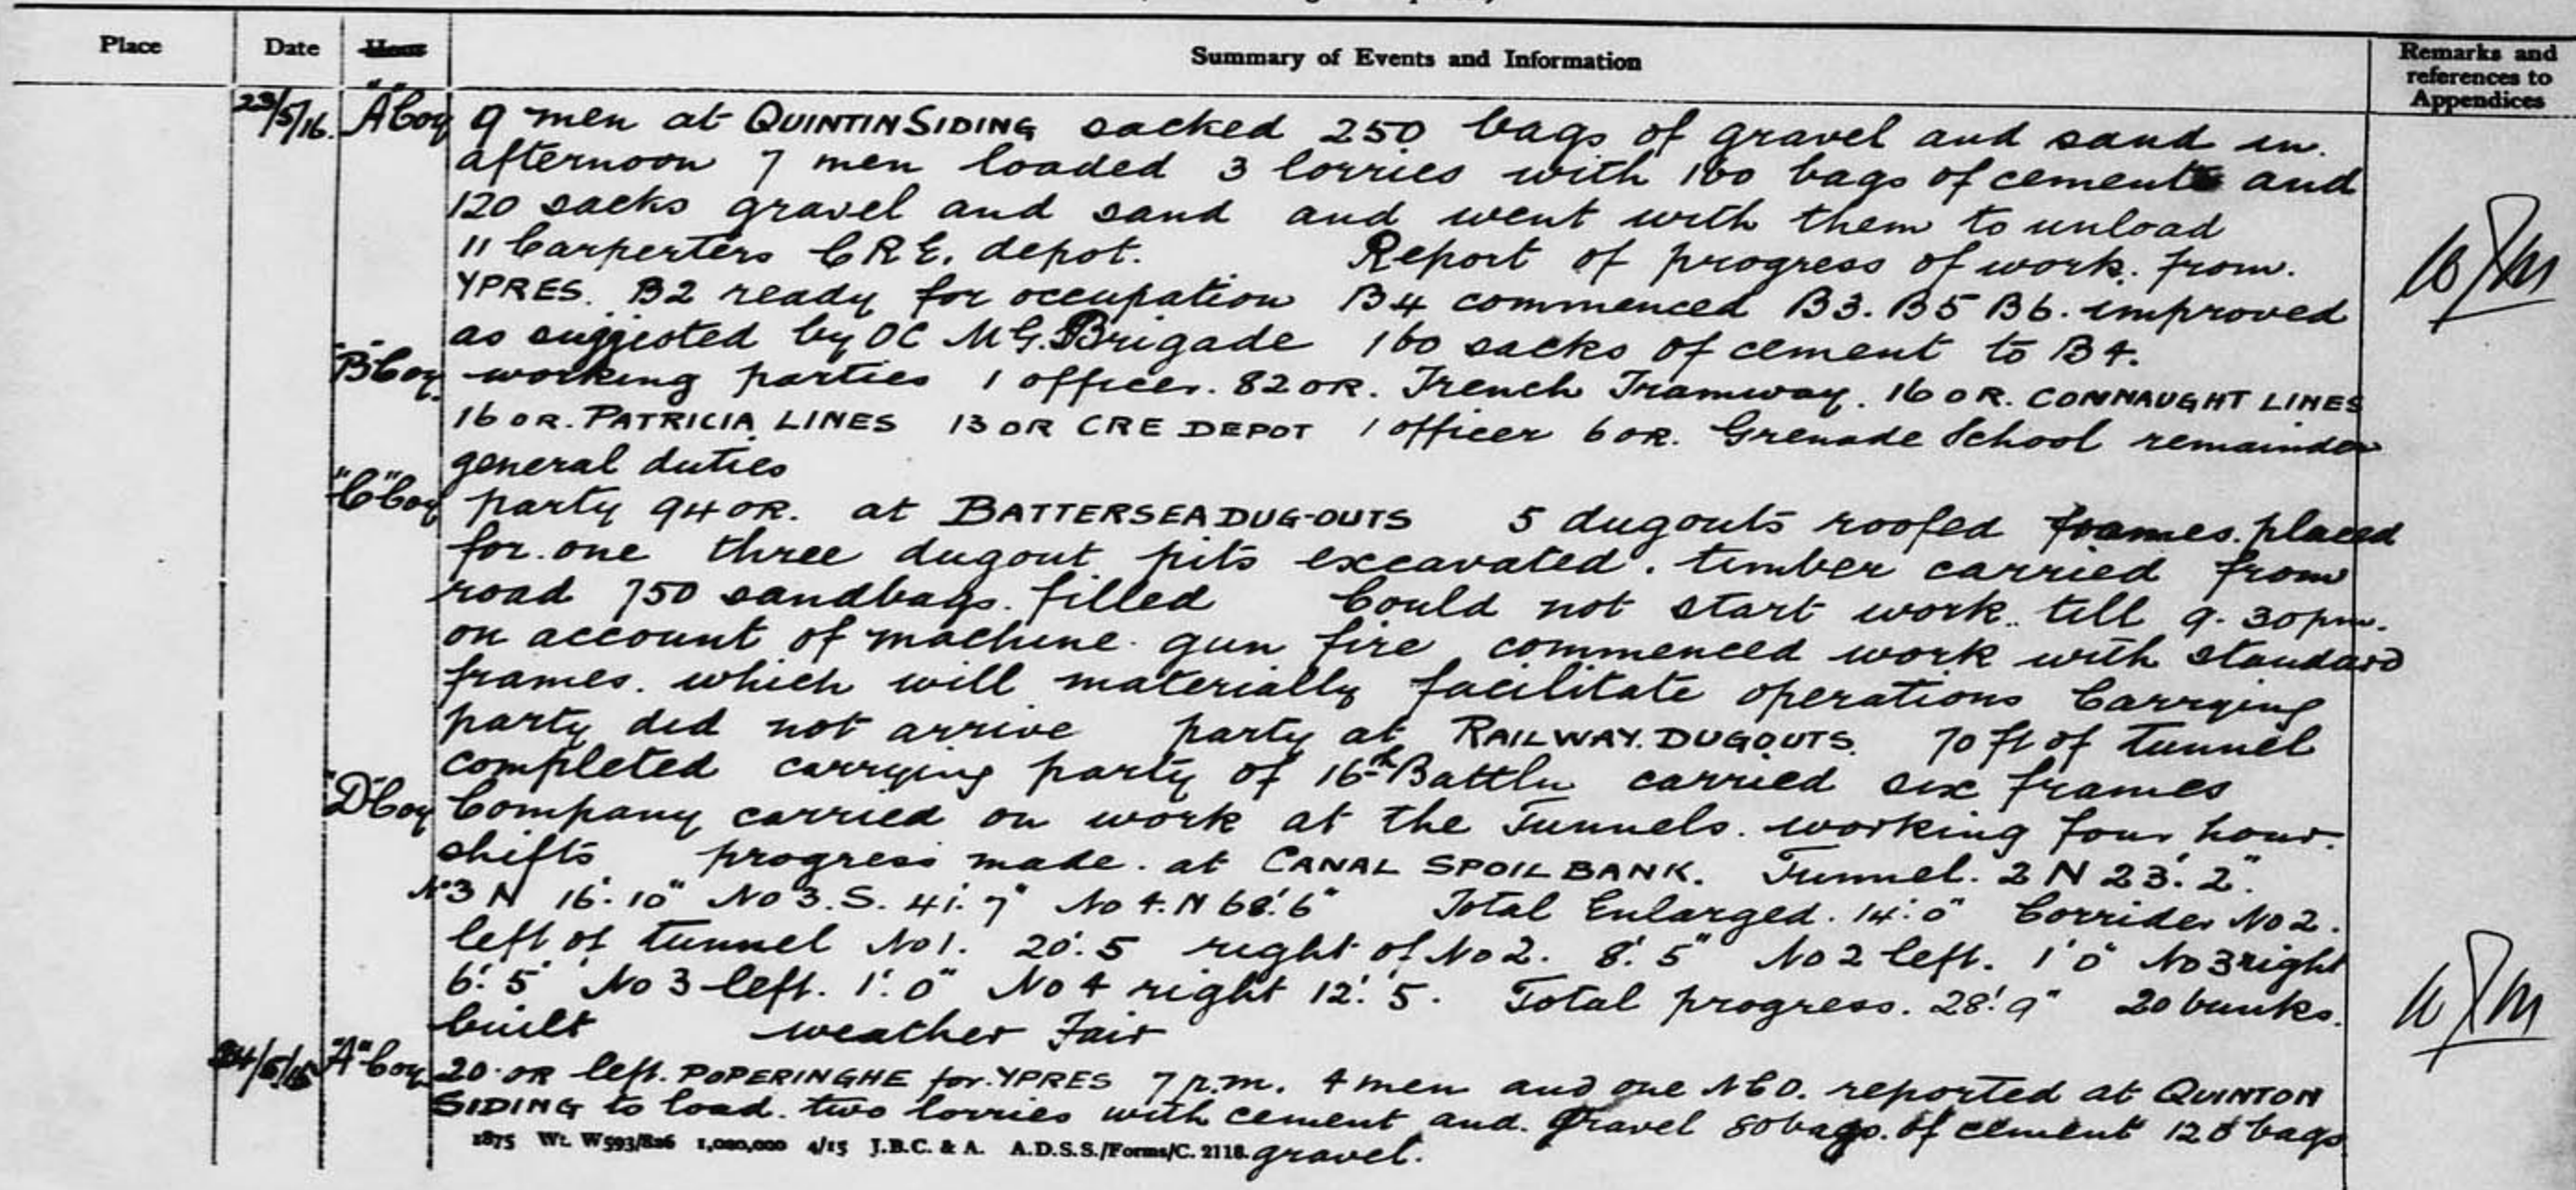 Place Date Hour Summary of Events and Information Remarks and references to Appendices
23/5/16. "A" Coy 9 men at QUINTIN SIDING sacked 250 bags of gravel and sand in.
afternoon 7 men loaded 3 lorries with 160 bags of cement and
120 sacks gravel and sand and went with them to unload
11 Carperters C R E. depot. Report of progress of work. from.
YPRES. B2 ready for occupation B4 commenced B3. B5 B6. improved
as suggested by OC M G. Brigade 160 sacks of cement to B4.
"B" Coy. working parties 1 officer. 82 OR. Trench Tramway. 16 OR. CONNAUGHT LINES
16 OR. PATRICIA LINES 13 OR CRE DEPOT 1 officer 6 OR. Grenade School remainder
general duties
"C" Coy party 94 OR. at BATTERSEA DUG-OUTS 5 dugouts roofed frames. placed
for one three dugout pits excavated. timber carried from
road 750 sandbags. filled Could not start work. till 9.30 pm.
on account of machine gun fire commenced work with standard
frames. which will materially facilitate operations Carrying
party did not arrive party at RAILWAY. DUGOUTS. 70 ft of tunnel
completed carrying party of 16th Battln carried six frames
"D" Coy Company carried on work at the Tunnels. working four hour.
shifts progress made. at CANAL SPOIL BANK. Tunnel. 2 N 23'. 2".
No 3 N 16'. 10" No 3. S. 41'. 7" No 4. N 68'. 6" Total Enlarged. 14'. 0" Corrider No 2.
left of tunnel No 1. 20'. 5 right of No 2. 8'. 5" No 2 left. 1' 0" No 3 right
6'. 5" No 3 left. 1'. 0" No 4 right 12'. 5. Total progress. 28'. 9" 20 bunks.
built weather Fair
24/5/16 "A" Coy 20 OR left. POPERINGHE for YPRES 7 p.m. 4 men and one NCO. reported at QUINTON
SIDING to load. two lorries with cement and. Gravel 80 bags. of cement 120 bags
1875 Wt. W593/826 1,000,000 4/15 J.B.C. & A. A.D.S.S./Forms/C. 2118. gravel.